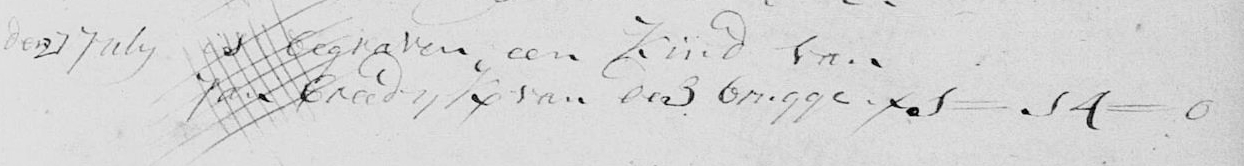 den 7 July is begraven, een Kind van
Jan breedyk van der brugge f 5 = 14 = 0